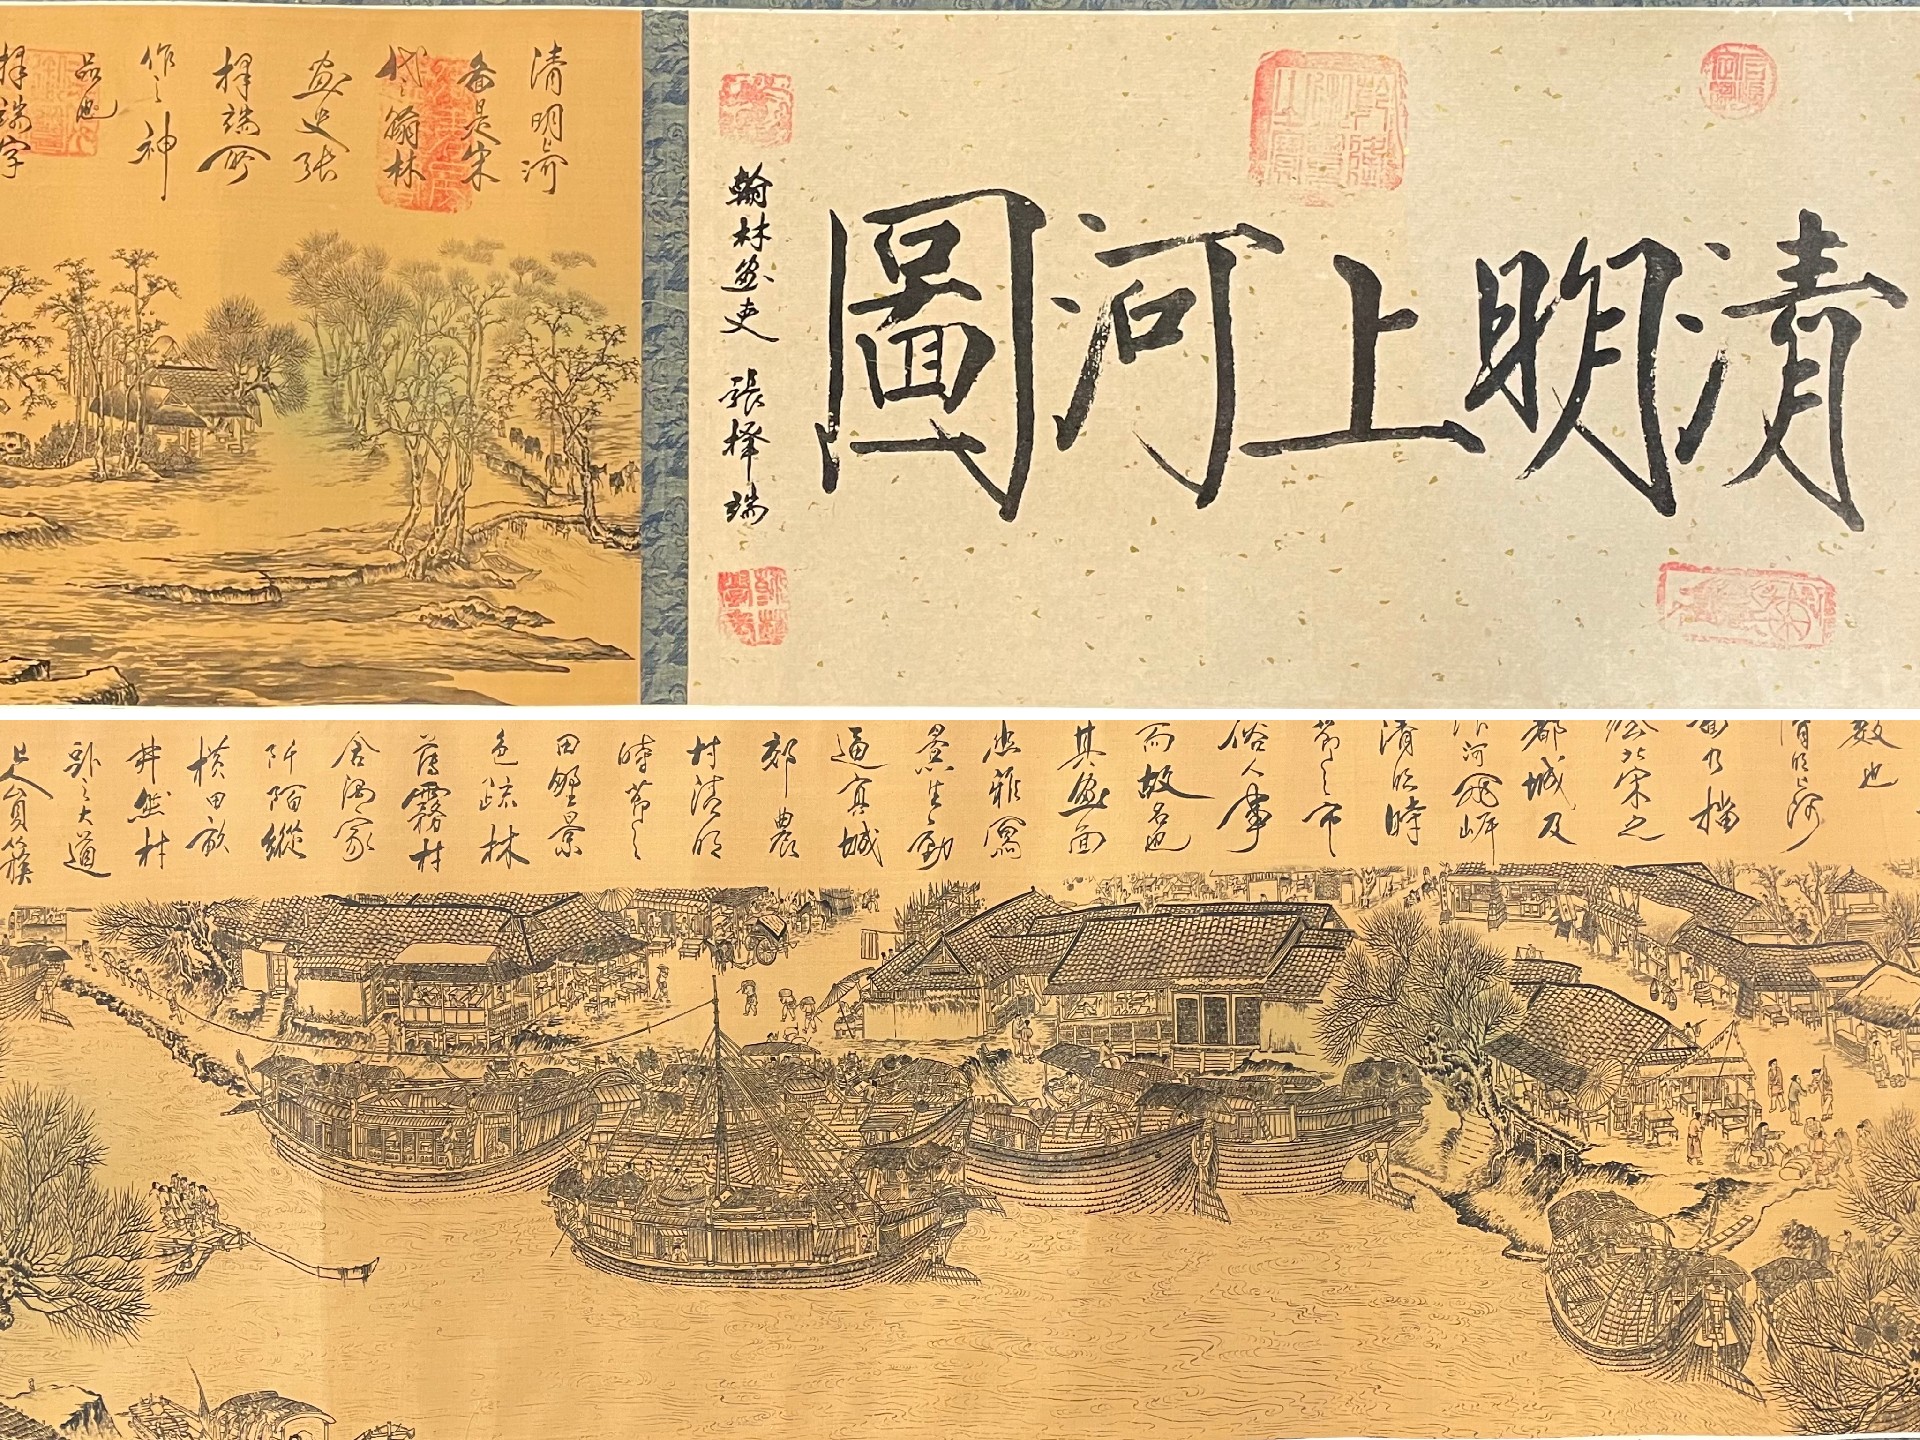 清明上河圖
翰林畫史 張擇端
清明上河
啚是宋
代翰林
畫史張
擇端所
作之神
品也
擇端字
數也
清明上河
啚乃描
繪北宋之
都城及
汴河兩岸
清明時
節之市
俗人事
而故名也
其畫面
典雅寫
景生動
逼真城
郊農
村清明
時節之
田野景
色疏林
薄霧村
舍酒家
阡陌縱
橫田畝
井然村
之大道
上人員簇